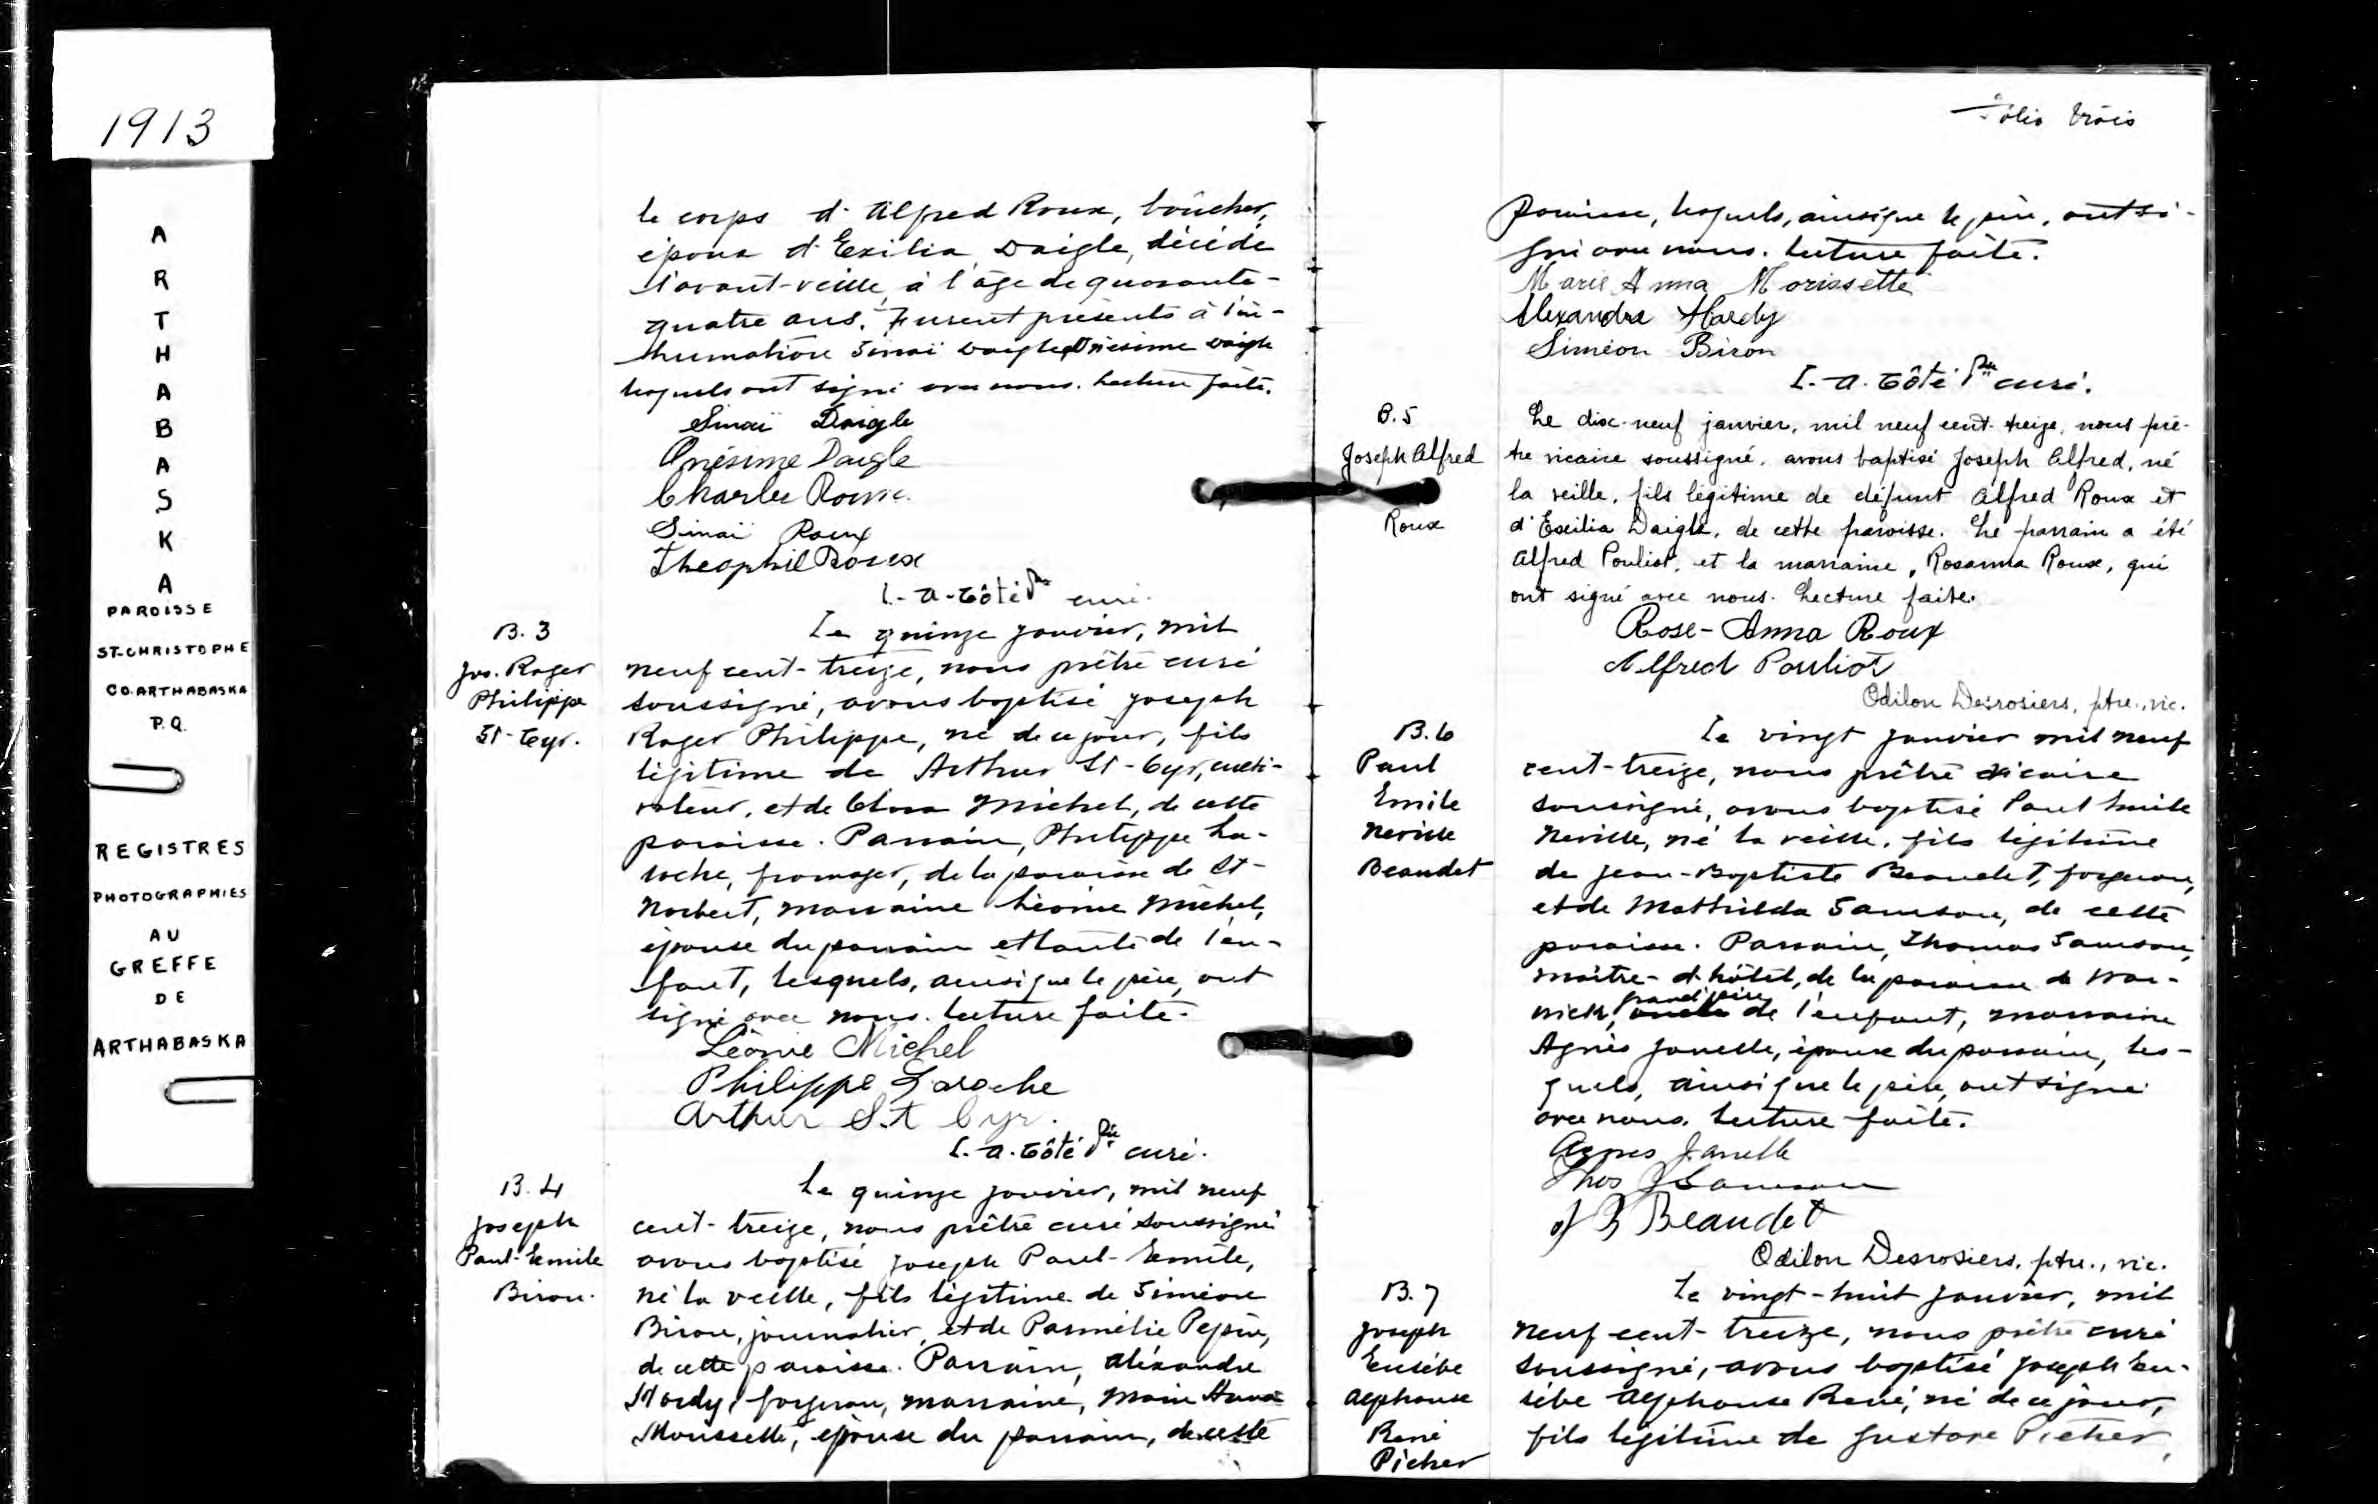 1913
A
R
T
H
A
B
A
S
K
A
PAROISSE
ST-CHRISTOPHE
CO. ARTHABASKA
P.Q.
REGISTRES
PHOTOGRAPHIES
AU
GREFFE
DE
ARTHABASKA
le corps d'Alfred Roux, boucher,
époux d'Exilia Daigle, décédé
l'avant-veille, à l'âge de quarante-
quatre ans. Furent présents à l'in-
humation Sinaï Daigle, Onésime Daigle
lesquels ont signé avec nous. Lecture faite.
Sinaï Daigle
Onésime Daigle
Charles Roux
Sinaï Roux
Theophil Roux
L.-A. Côté Ptre curé.
B. 3
Jos. Roger
Philippe
St-Cyr.
Le quinze janvier, mil
neuf cent-treize, nous prêtre curé
soussigné, avons baptisé Joseph
Roger Philippe, né de ce jour, fils
légitime de Arthur St-Cyr, culti-
vateur, et de Clara Michel, de cette
paroisse. Parrain, Philippe La-
roche, fromager, de la paroisse de St-
Norbert, marraine Léonie Michel,
épouse du parrain et tante de l'en-
fant, lesquels, ainsi que le père, ont
signé avec nous. Lecture faite.
Léonie Michel
Philippe Laroche
Arthur St Cyr.
L.-A. Côté Ptre curé.
B. 4
Joseph
Paul-Emile
Biron.
Le quinze janvier, mil neuf
cent-treize, nous prêtre curé soussigné
avons baptisé Joseph Paul-Emile,
né la veille, fils légitime de Siméon
Biron, journalier, et de Parmélie Pepin,
de cette paroisse. Parrain, Alexandre
Hardy, forgeron, marraine, Marie Anna
Morissette, épouse du parrain, de cette
Folio trois
paroisse, lesquels, ainsi que le père, ont si-
gné avec nous. Lecture faite.
Marie Anna Morissette
Alexandre Hardy
Siméon Biron
L.-A. Côté Ptre curé.
B. 5
Joseph Alfred
Roux
Le dix-neuf janvier, mil neuf cent-treize, nous prê-
tre vicaire soussigné, avons baptisé Joseph Alfred, né
la veille, fils légitime de défunt Alfred Roux et
d'Exilia Daigle, de cette paroisse. Le parrain a été
Alfred Pouliot, et la marraine, Rosanna Roux, qui
ont signé avec nous. Lecture faite.
Rose-Anna Roux
Alfred Pouliot
Odilon Desrosiers, ptre., vic.
B. 6
Paul
Emile
Neville
Beaudet
Le vingt janvier mil neuf
cent-treize, nous prêtre vicaire
soussigné, avons baptisé Paul Emile
Neville, né la veille, fils légitime
de Jean-Baptiste Beaudet, forgeron,
et de Mathilda Samson, de cette
paroisse. Parrain, Thomas Samson,
maître-d'hôtel, de la paroisse de War-
wick, grand'père de l'enfant, marraine
Agnès Janelle, épouse du parrain, les-
quels, ainsi que le père, ont signé
avec nous. Lecture faite.
Agnes Janelle
Thos Samson
J B Beaudet
Odilon Desrosiers, ptre., vic.
B. 7
Joseph
Eusèbe
Alphonse
René
Picher
Le vingt-huit janvier, mil
neuf-cent-treize, nous prêtre curé
soussigné, avons baptisé Joseph Eu-
sèbe Alphonse René, né de ce jour,
fils légitime de Gustave Picher,